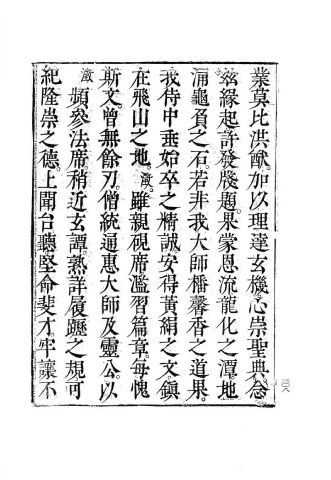 業莫比洪猷。加以理達玄機。心崇聖典。念
茲緣起。許發牋題。果蒙恩流龍化之潭。地
涌龜負之石。若非我大師播馨香之道果。
我侍中垂始卒之精誠。安得黃絹之文。鎮
在飛山之地。澂。雖親硯席。濫習篇章。每愧
斯文。曾無餘刃。僧統通惠大師及靈公。以
澂頻參法席。稍近玄譚。熟詳履踐之規。可
紀隆崇之德。上聞台聽。堅命斐才。牢讓不